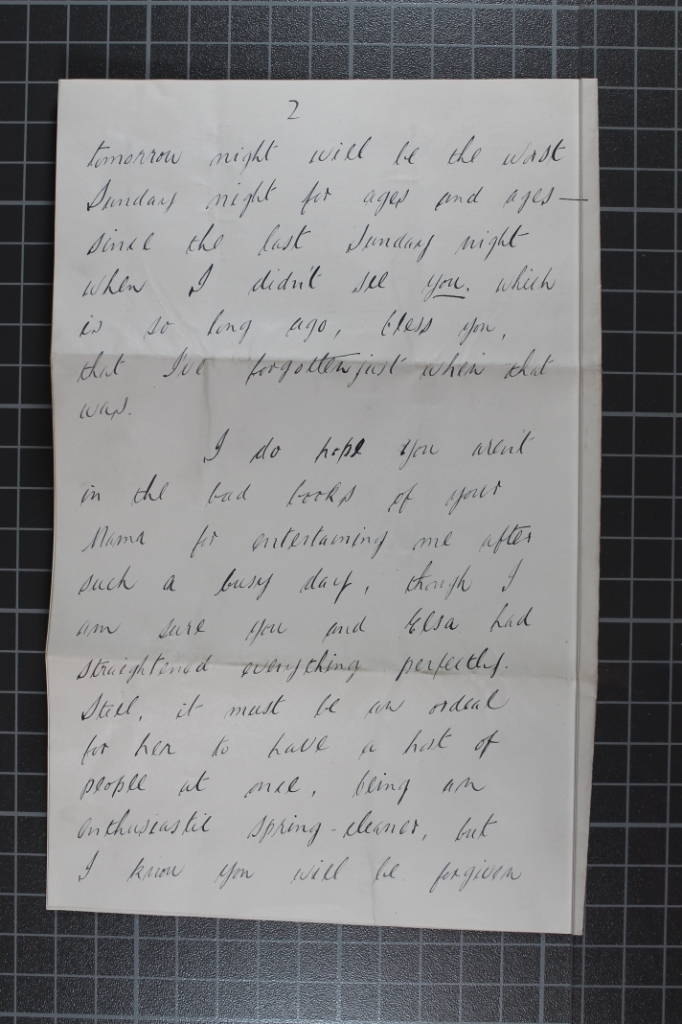 2
tomorrow night will be the worst
Sunday night for ages and ages—
since the last Sunday night
when I didn't see you, which
is so long ago, bless you,
that I've forgotten just when that
was.
I do hope you aren't
in the bad books of your
Mama for entertaining me after
such a busy day, though I
am sure you and Elsa had
straightened everything perfectly.
Still, it must be an ordeal
for her to have a host of
people at once, being an
enthusiastic spring-cleaner, but
I know you will be forgiven